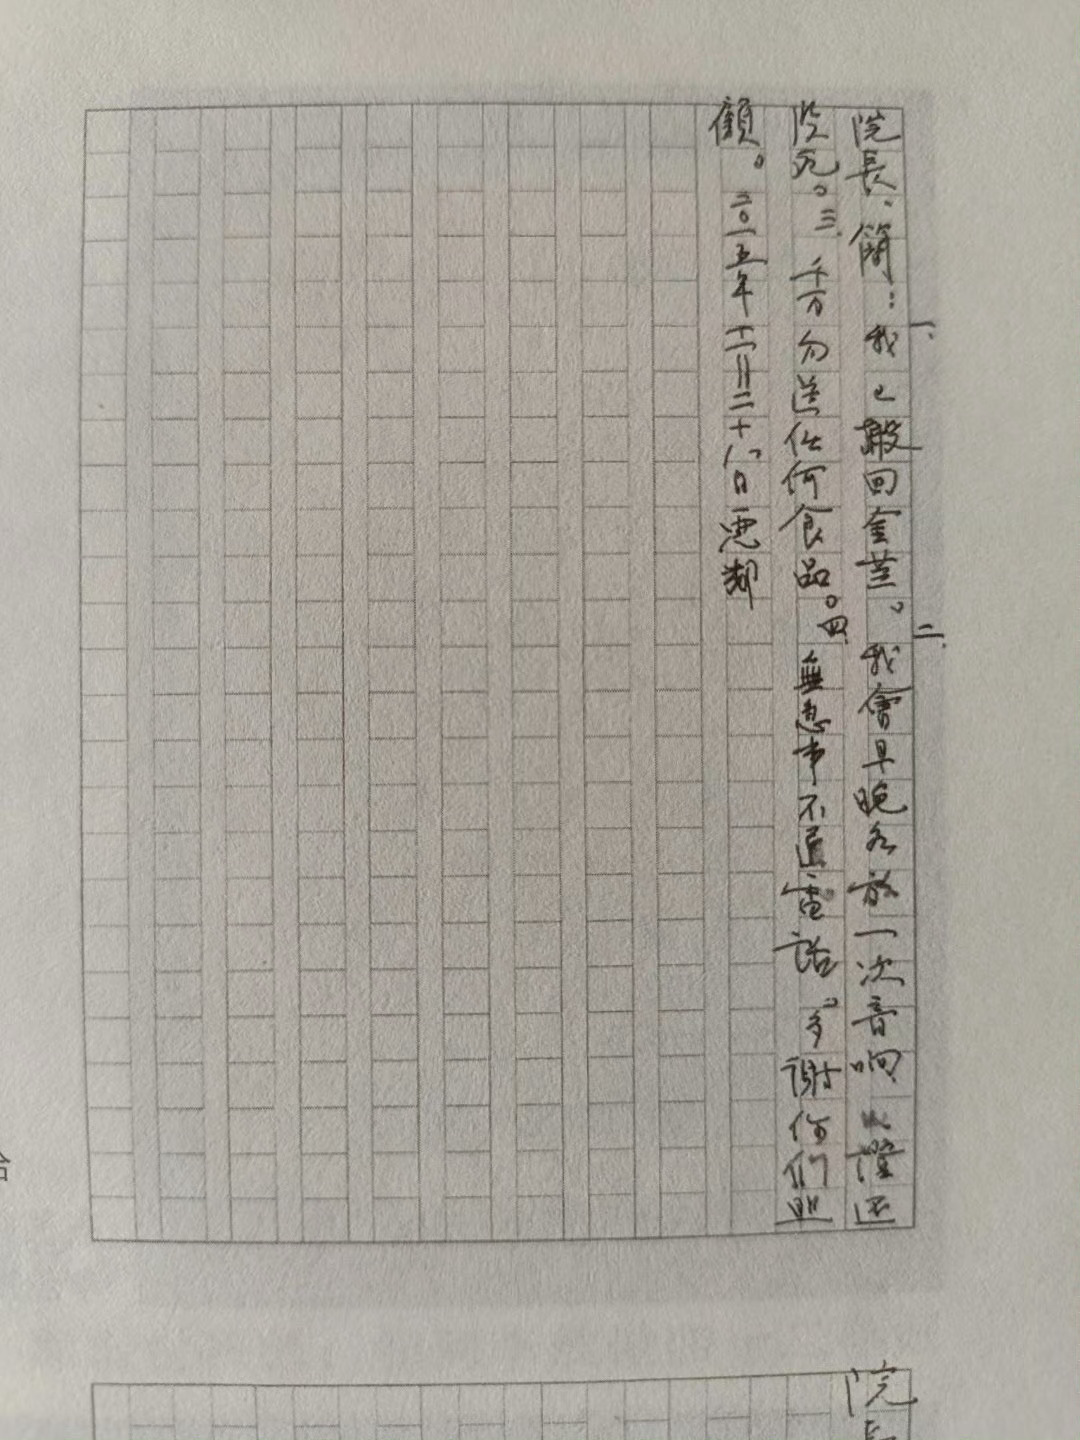 院長、簡：一、我已搬回金芝。二、我會早晚各放一次音响，以證还
没死。三、千万勿送任何食品。四、無急事不追電話。多謝你們照
顧。二〇一五年十二月二十八日
院長